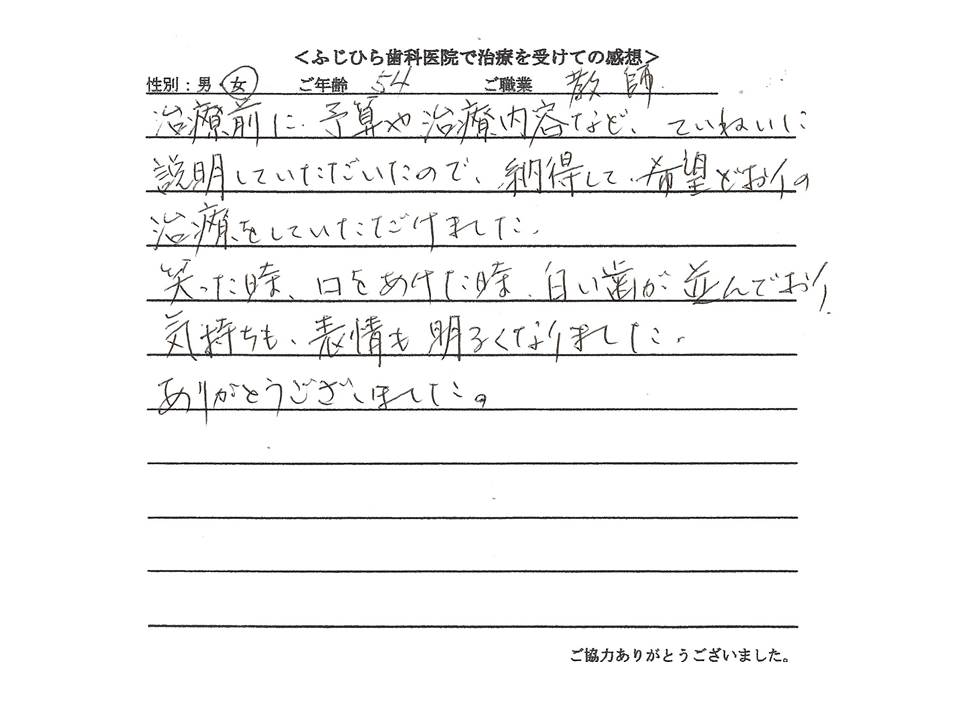 ＜ふじひら歯科医院で治療を受けての感想＞
性別：男 女 ご年齢 54 ご職業 教師
治療前に、予算や治療内容など、ていねいに
説明していただいたので、納得して、希望どおりの
治療をしていただけました。
笑った時、口をあけた時、白い歯が並んでおり、
気持ちも、表情も明るくなりました。
ありがとうございました。
ご協力ありがとうございました。